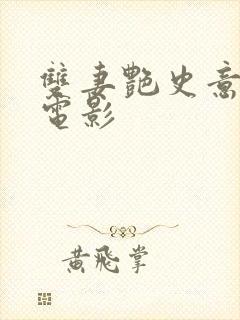 雙妻艷史意
電影
黃飛掌